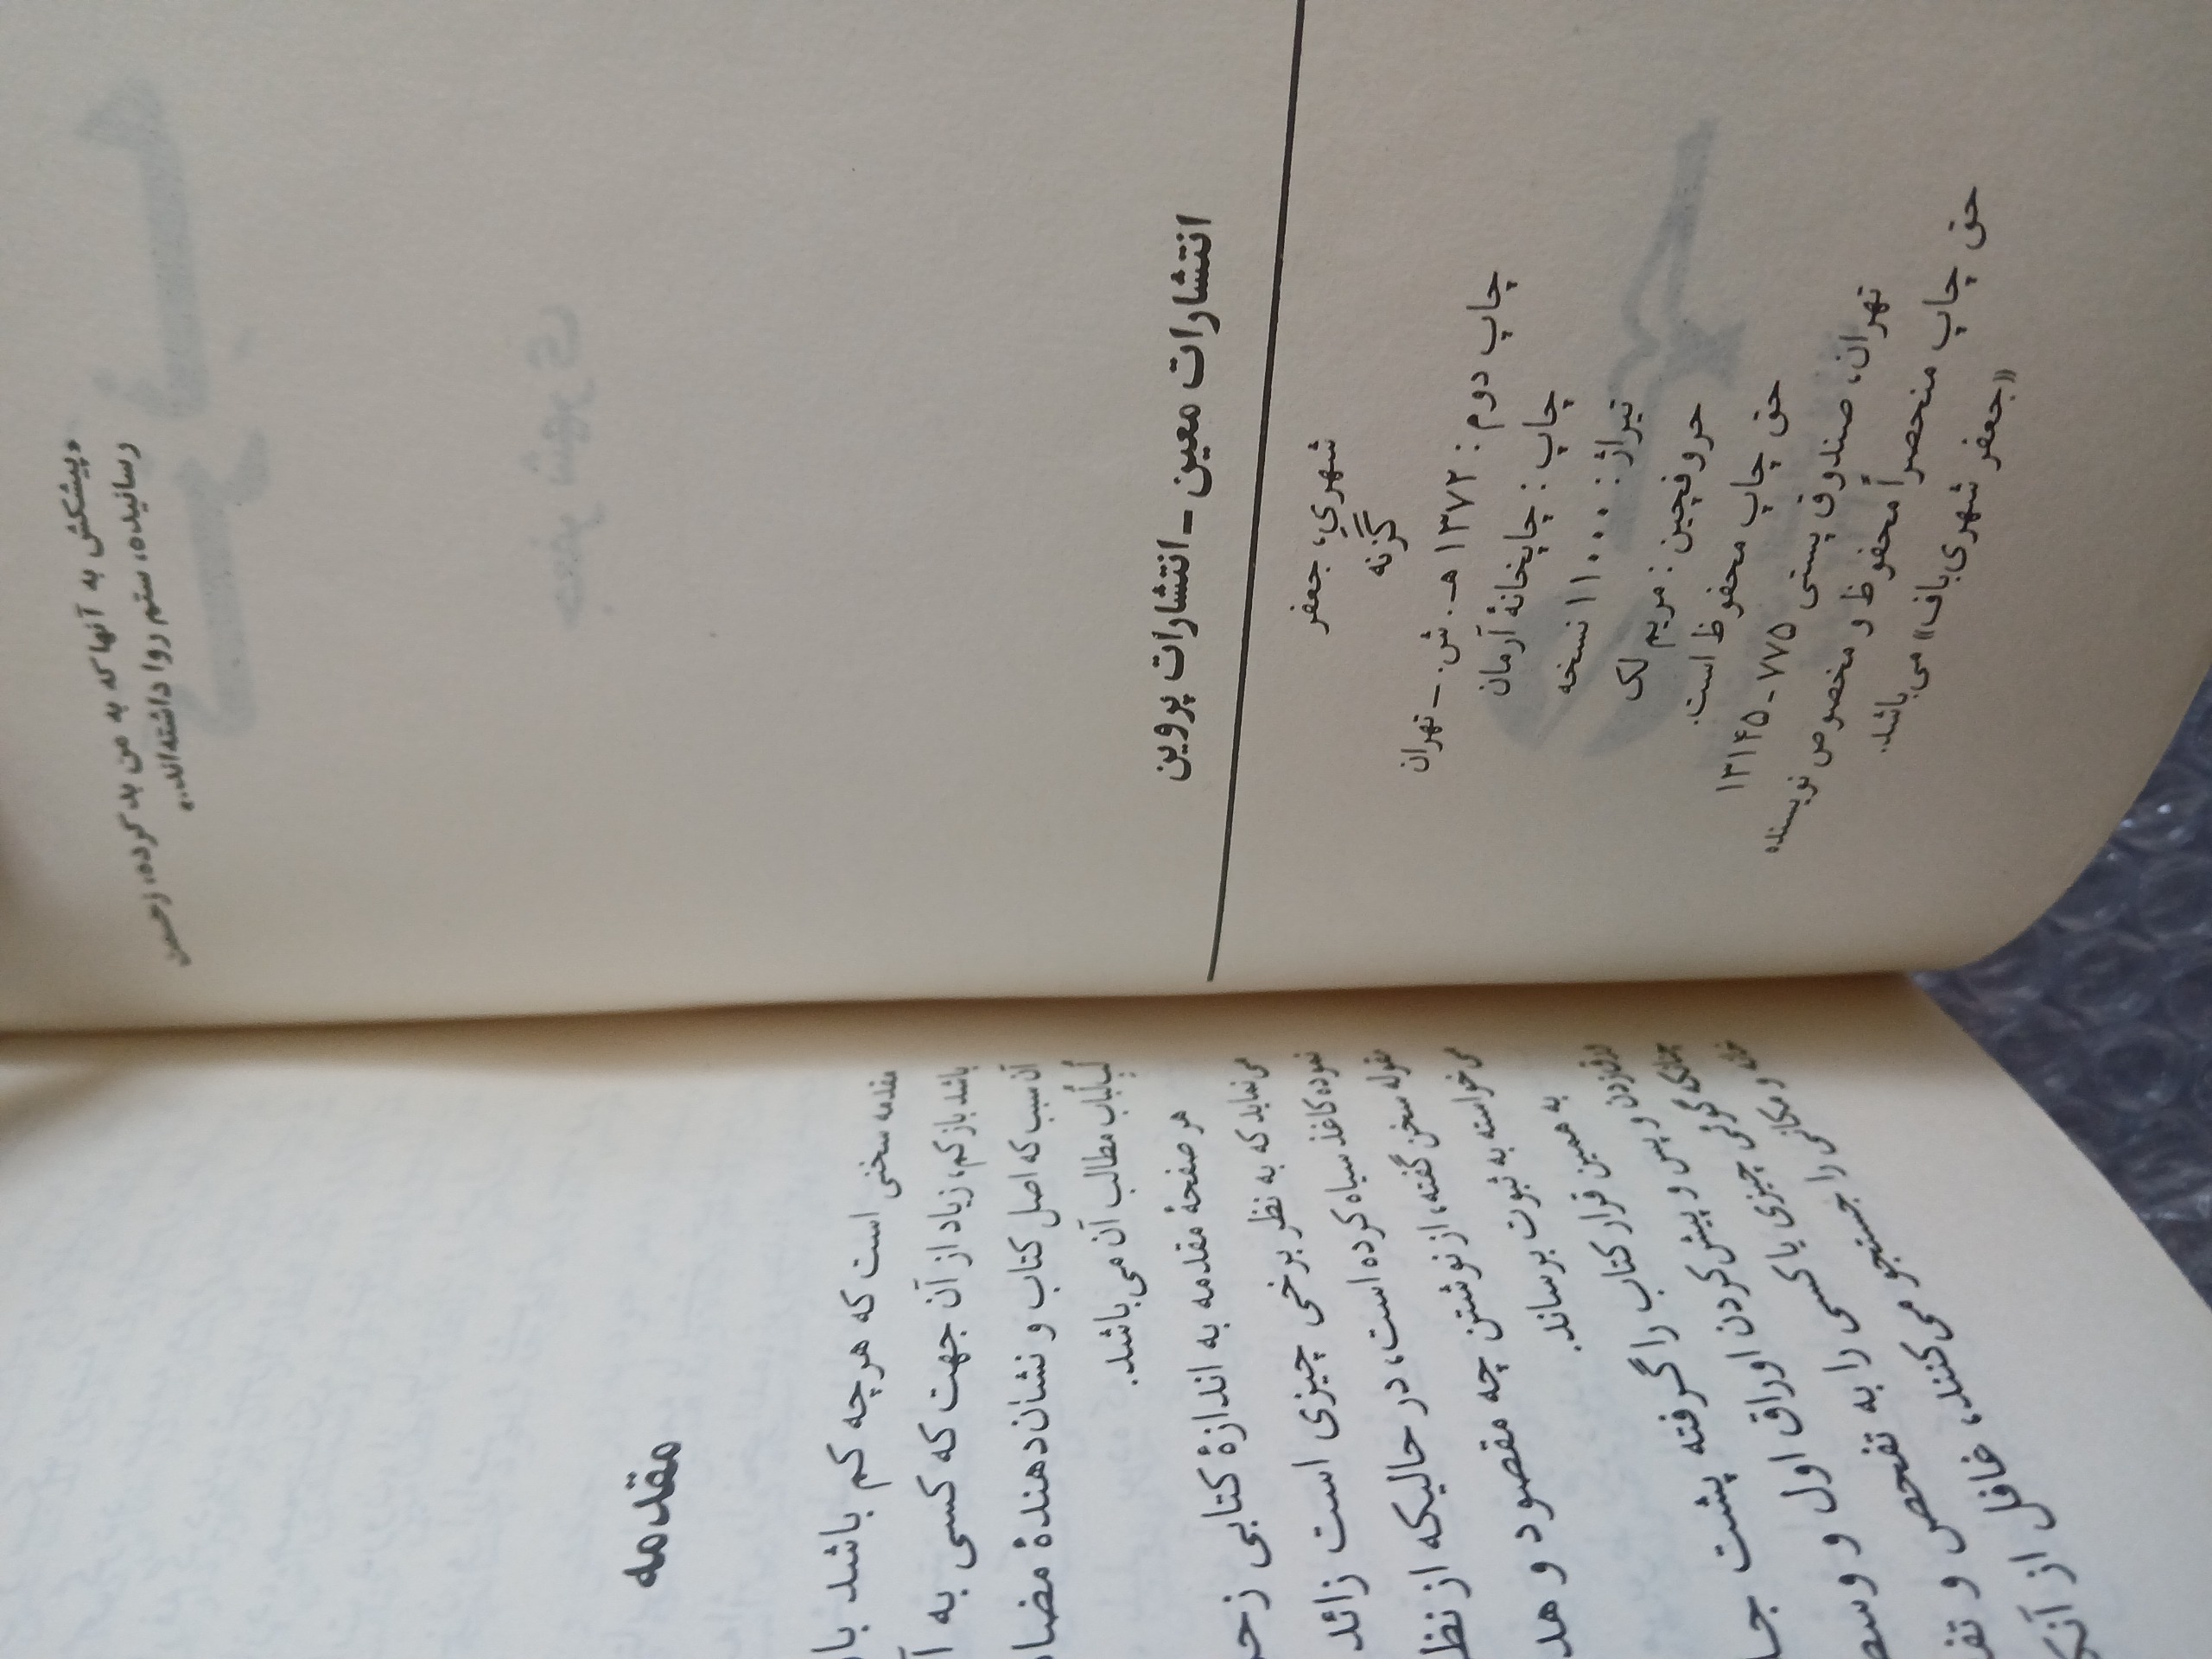 «پیشکش به آنها که به من بد کرده، زحمت
رسانیده، ستم روا داشته‌اند.»
انتشارات معین - انتشارات پروین
شهری، جعفر
گزنه
چاپ دوم: ۱۳۷۲ هـ. ش. - تهران
چاپ: چاپخانهٔ آرمان
تیراژ: ۱۱۰۰۰ نسخه
حروفچین: مریم لک
حق چاپ محفوظ است.
تهران، صندوق پستی ۷۷۵ - ۱۳۱۴۵
حق چاپ منحصراً محفوظ و مخصوص نویسنده
«جعفر شهری‌باف» می‌باشد.
مقدمه
مقدمه سخنی است که هر چه کم باشد با
باشد باز کم، زیاد از آن جهت که کسی به
آن سبب که اصل کتاب و نشان‌دهندهٔ
لُب‌لُباب مطالب آن می‌باشد.
هر صفحهٔ مقدمه به اندازهٔ کتابی
می‌نماید که به نظر برخی چیزی است زائد
نموده کاغذ سیاه کرده است، در حالیکه از
بقوله سخن گفته، از نوشتن چه مقصود و
می‌خواسته به ثبوت برساند.
به همین قرار کتاب را گرفته پشت
ورق زدن و پس و پیش کردن اوراق اول و
چنانکه گوئی چیزی یا کسی را به تفحص و
خانه و مکانی را جستجو می‌کنند، غافل از